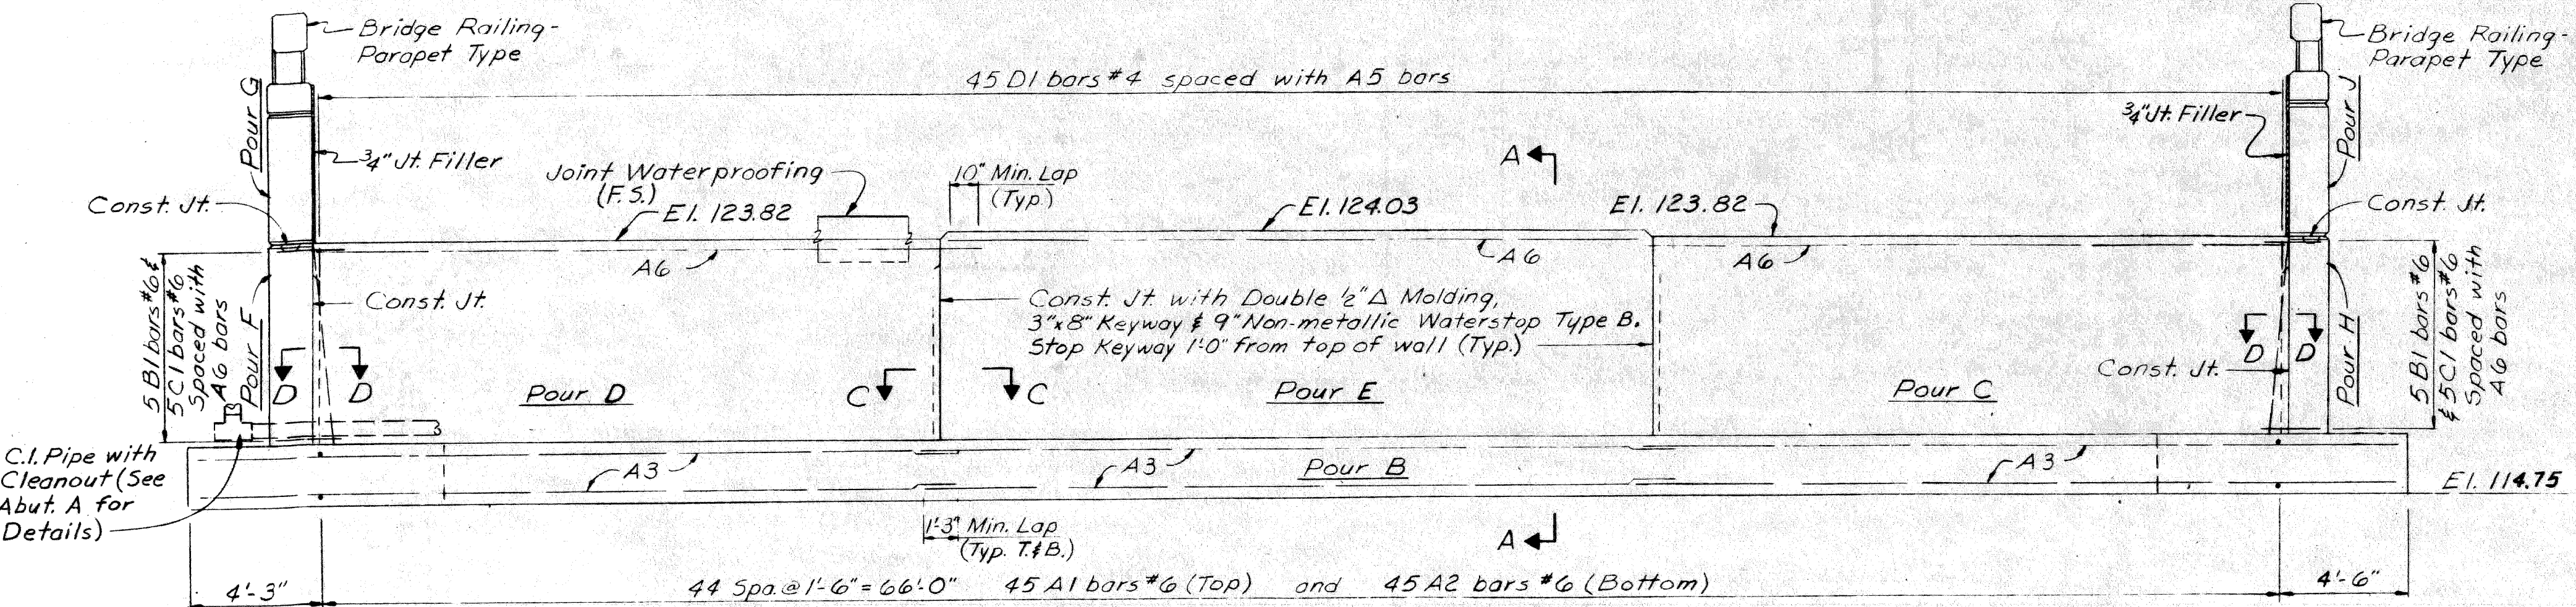 Bridge Railing-
Parapet Type
Bridge Railing-
Parapet Type
45 D1 bars #4 spaced with A5 bars
Pour G
3/4" Jt. Filler
Joint Waterproofing
(F.S.)
10" Min. Lap
(Typ.)
A
3/4" Jt. Filler
Pour J
Const. Jt.
El. 123.82
El. 124.03
El. 123.82
Const. Jt.
A6
A6
A6
5 B1 bars #6 &
5 C1 bars #6
Spaced with
A6 bars
Pour F
Const. Jt.
Const. Jt. with Double 1/2" Δ Molding,
3"x8" Keyway & 9" Non-metallic Waterstop Type B.
Stop Keyway 1'-0" from top of wall (Typ.)
D
D
Pour D
C
C
Pour E
Pour C
Const. Jt.
D
D
Pour H
5 B1 bars #6
& 5 C1 bars #6
Spaced with
A6 bars
C.I. Pipe with
Cleanout (See
Abut. A for
Details)
A3
A3
Pour B
A3
El. 114.75
1'-3" Min. Lap
(Typ. T. & B.)
A
4'-3"
44 Spa. @ 1'-6" = 66'-0" 45 A1 bars #6 (Top) and 45 A2 bars #6 (Bottom)
4'-6"